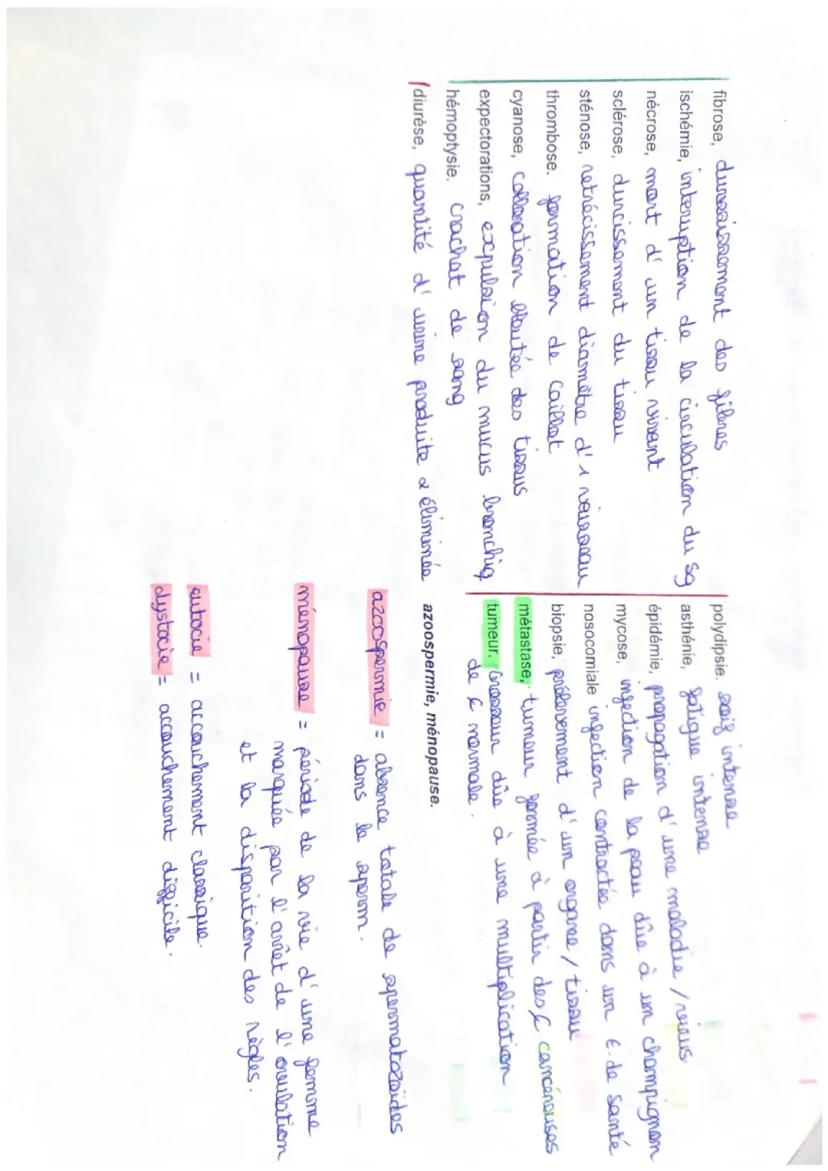 fibrose, durcissement des fibres
ischémie, interruption de la circulation du sg
nécrose, mort d'un tissu vivant
sclérose, durcissement du tissu
sténose, retrécissement diamètre d'1 vaisseau
thrombose. formation de caillot
cyanose, coloration bleutée des tissus
expectorations, expulsion du mucus bronchiq
hémoptysie. crachat de sang
diurèse, quantité d'urine produite & éliminée
polydipsie. soif intense
asthénie, fatigue intense
épidémie, propagation d'une maladie / virus
mycose, infection de la peau dûe à un champignon
nosocomiale infection contractée dans un E. de santé
biopsie, prélèvement d'un organe / tissu
métastase, tumeur formée à partir des C cancéreuses
tumeur. Grosseur dûe à une multiplication
de C normale.
azoospermie, ménopause.
azoospermie = absence totale de spermatozoïdes
dans le sperm.
ménopause = période de la vie d'une femme
marquée par l'arrêt de l'ovulation
et la disparition des règles.
eutocie = accouchement classique.
dystocie = accouchement difficile.